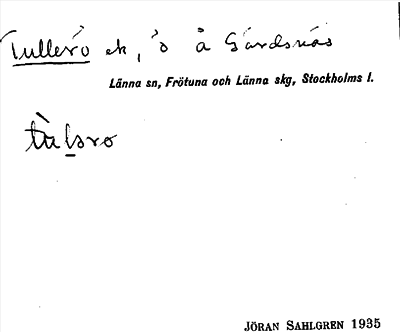 Tullerö ek, 'ö å Gårdsnäs
Länna sn, Frötuna och Länna skg, Stockholms l.
JÖRAN SAHLGREN 1935